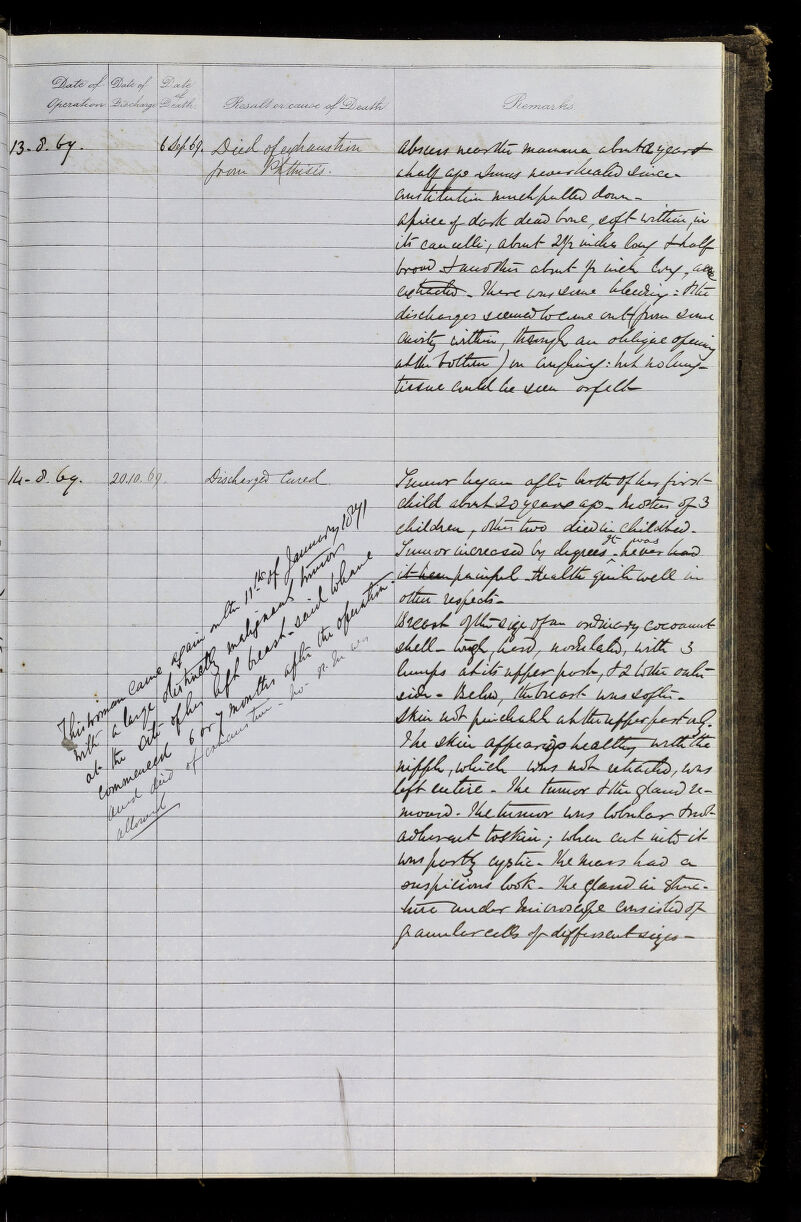 Date of Operation
Date of Discharge
Date of Death
Result or cause of Death
Remarks
13-8.69.
6 Sep 69.
Died of exhaustion
from Phthisis.
abscess near the mamma about 2 years &
a half ago. Sinus never healed since.
Constitution much pulled down -
A piece of dark dead bone, soft within, in
its cancelli, about 2½ inches long & half
broad & another about ½ inch long, were
extracted. There was some bleeding - & the
discharges seemed to come out (from some
cavity within, through an oblique opening
at the bottom) on coughing: but no lung-
tissue could be seen or felt
14-8.69.
20.10.69.
Discharged Cured
Tumor began after birth of her first
child about 20 years ago - Mother of 3
children, other two died in childbed.
Tumor increased by degrees - It was never had
it been painful. Health quite well in
other respects -
Breast of the size of an ordinary cocoanut
shell - tough, hard, nodulated, with 3
lumps at its upper part, & 2 to the outer
side - Below, the breast was softer -
Skin not pinchable at the upper part only.
The skin appearing healthy with the
nipple, which was not retracted, was
left entire - The tumor & the gland re-
moved. The tumor was lobular & not
adherent to skin; when cut into it
was partly cystic - The mass had a
suspicious look - The gland in struc-
ture under Microscope consisted of
granular cells of different sizes -
This woman came again on the 11th of January 1871
with a large distinctly malignant tumor
at the site of her left breast - said to have
commenced 6 or 7 months after the operation.
and died of exhaustion - no P.M. was
allowed